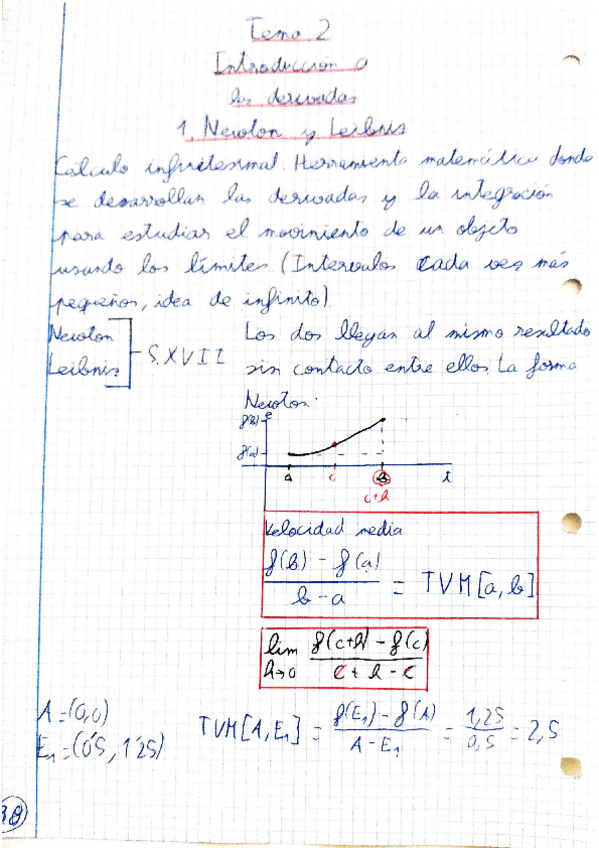 Tema 2
Introduccion a
las derivadas
1. Newton y Leibnis
Cálculo infinitesimal. Herramienta matemática donde
se desarrollan las derivadas y la integración
para estudiar el movimiento de un objeto
usando los límites (Intervalos cada vez más
pequeños, idea de infinito).
Newton
Leibnis
S.XVII
Los dos llegan al mismo resultado
sin contacto entre ellos. La forma
Newton.
f(b)
e
f(a)
a c b t
c+h
Velocidad media
f(b) - f(a) / b-a = TVM[a,b]
lim h→0 f(c+h) - f(c) / c+h-c
A=(0,0)
E₁=(0'5, 1'25)
TVM[A,E₁] = f(E₁)-f(A) / A-E₁ = 1,25 / 0,5 = 2,5